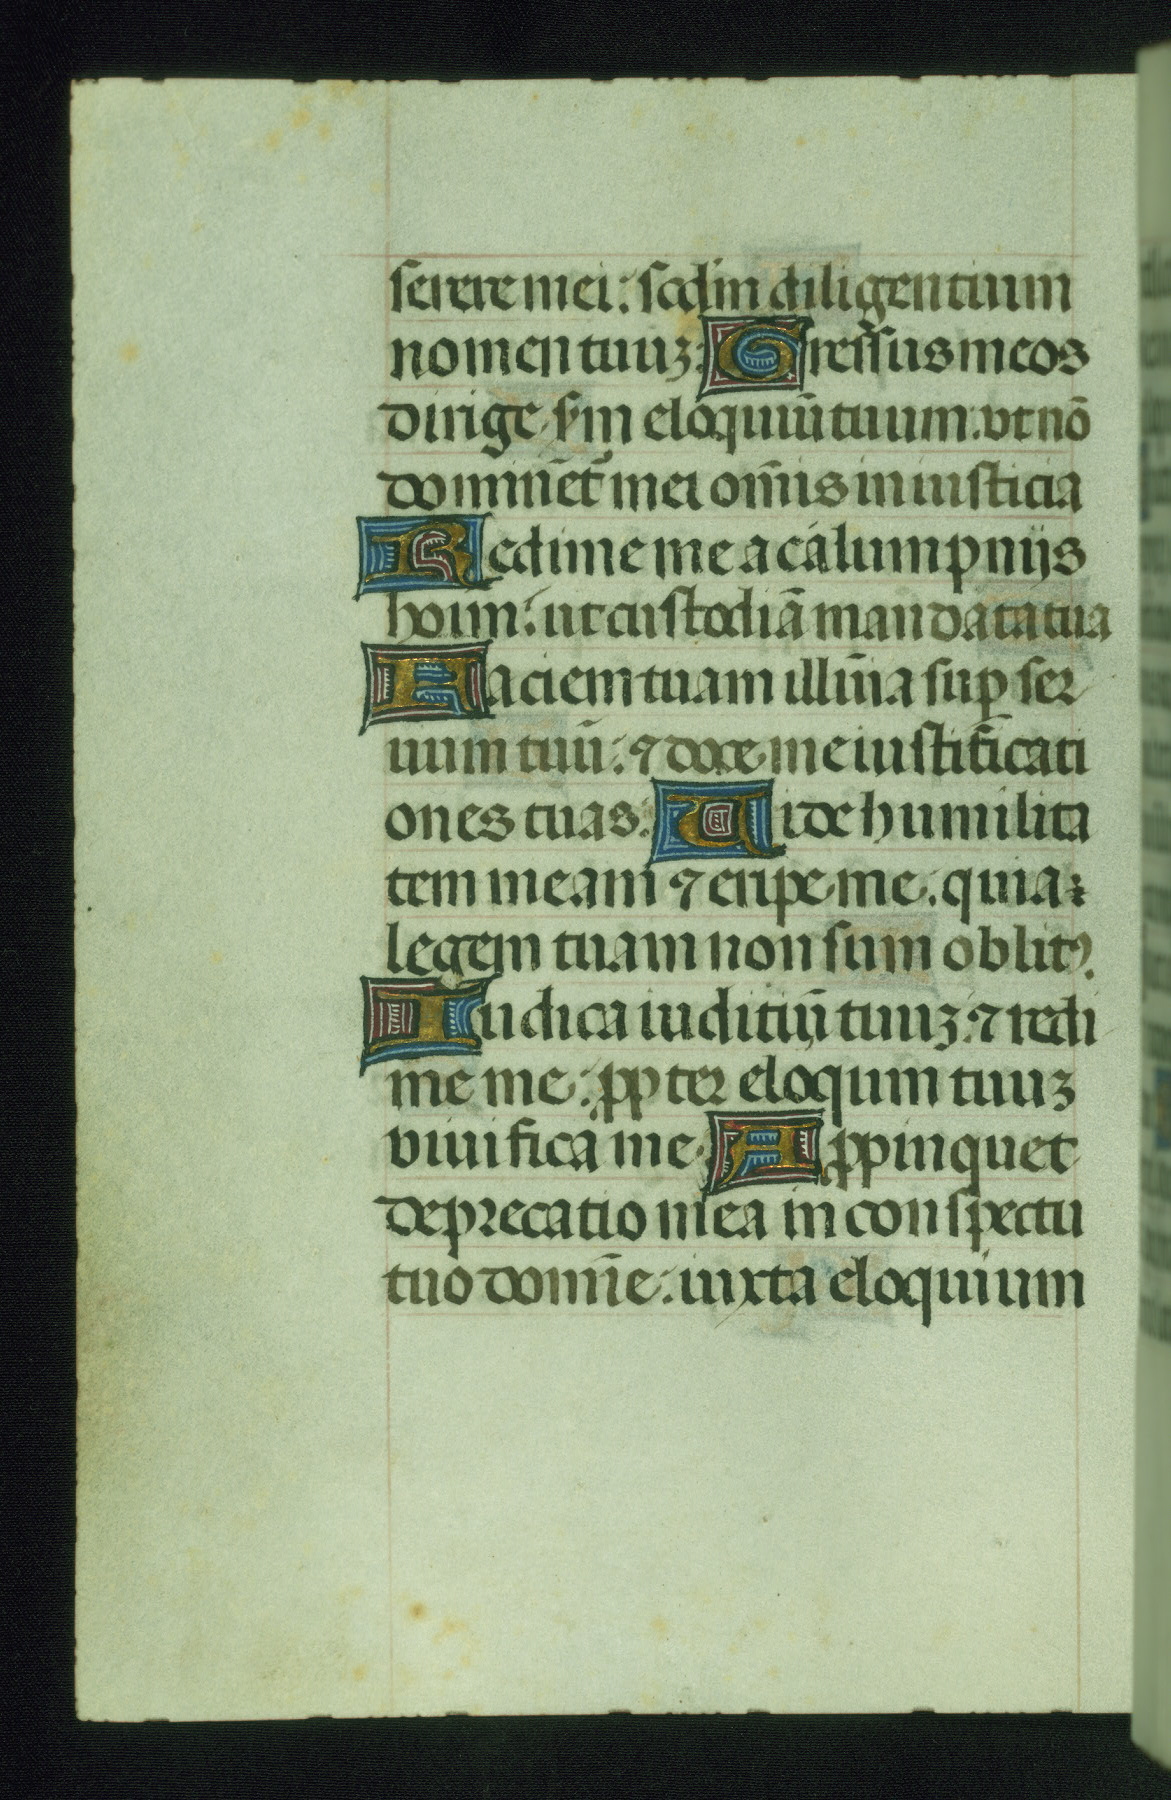 serere mei: scd'm diligentium
nomen tuuz: Gressus meos
dirige. sm eloquiū tuum. vt nō
domineͭ mei omīs iniusticia
Redime me a calumpnijs
hoīm: ut custodiā mandata tua
Faciem tuam illūia sup ser
uum tuū: ⁊ doce me iustificati
ones tuas. Uide humilita
tem meam ⁊ eripe me. quia
legem tuam non sum oblitꝰ.
Iudica iuditiū tuuz: ⁊ redi
me me: ꝓpter eloqum tuuz
viuifica me. Aꝓpinquet
deprecatio mea in conspectu
tuo domīe: iuxta eloquium